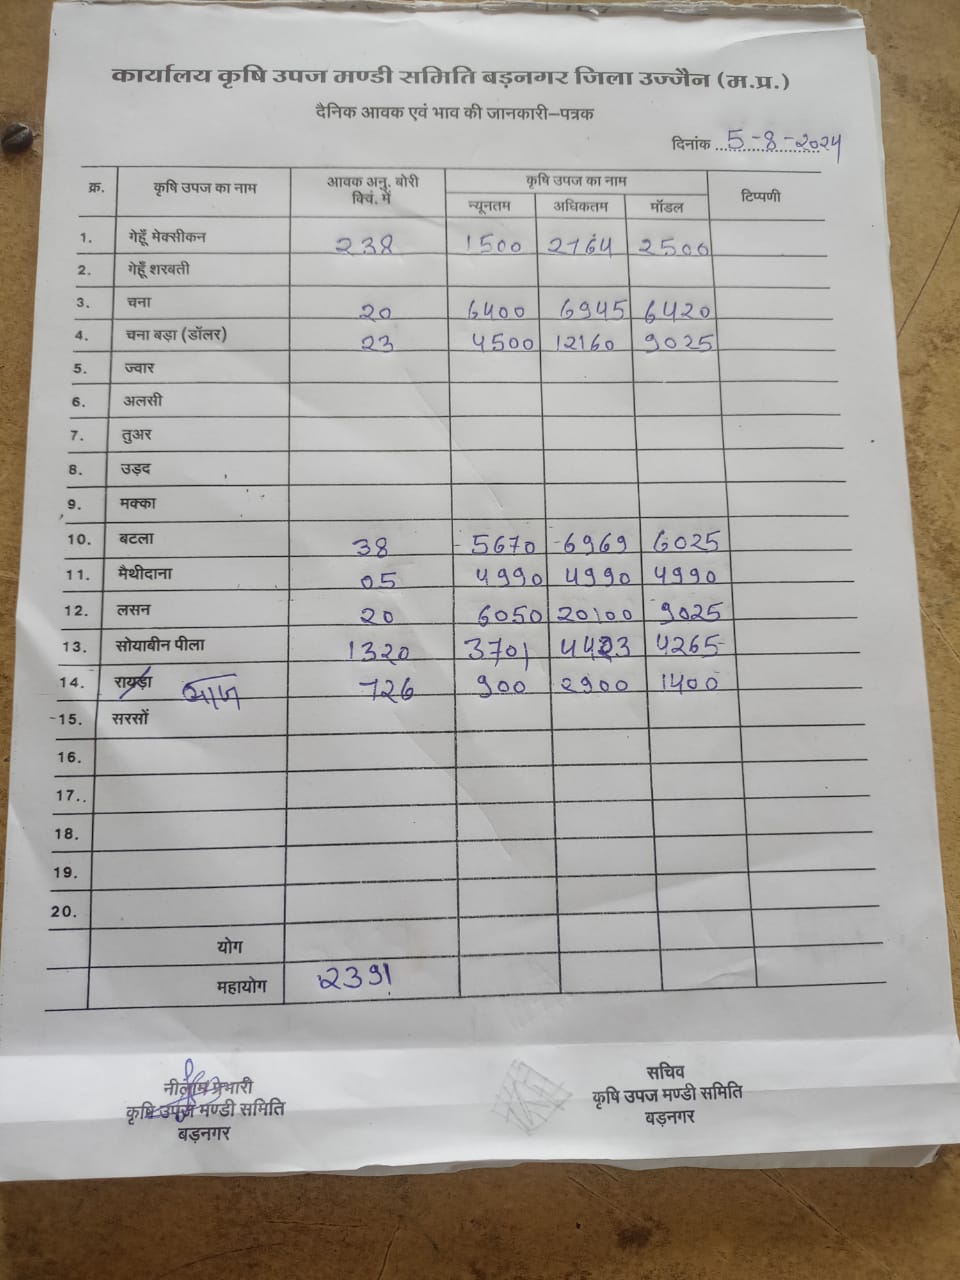 कार्यालय कृषि उपज मण्डी समिति बड़नगर जिला उज्जैन (म.प्र.)
दैनिक आवक एवं भाव की जानकारी–पत्रक
दिनांक 5-8-2024
क्र. कृषि उपज का नाम आवक अनु. बोरी क्विं. में कृषि उपज का नाम टिप्पणी
न्यूनतम अधिकतम मॉडल
1. गेहूँ मेक्सीकन 238 1500 2764 2500
2. गेहूँ शरबती
3. चना 20 6400 6945 6420
4. चना बड़ा (डॉलर) 23 4500 12160 9025
5. ज्वार
6. अलसी
7. तुअर
8. उड़द
9. मक्का
10. बटला 38 5670 6969 6025
11. मैथीदाना 05 4990 4990 4990
12. लसन 20 6050 20100 9025
13. सोयाबीन पीला 1320 3701 4423 4265
14. रायड़ा 726 900 2900 1400
15. सरसों
16.
17..
18.
19.
20.
योग
महायोग 2391
नीलाम प्रभारी
कृषि उपज मण्डी समिति
बड़नगर
सचिव
कृषि उपज मण्डी समिति
बड़नगर